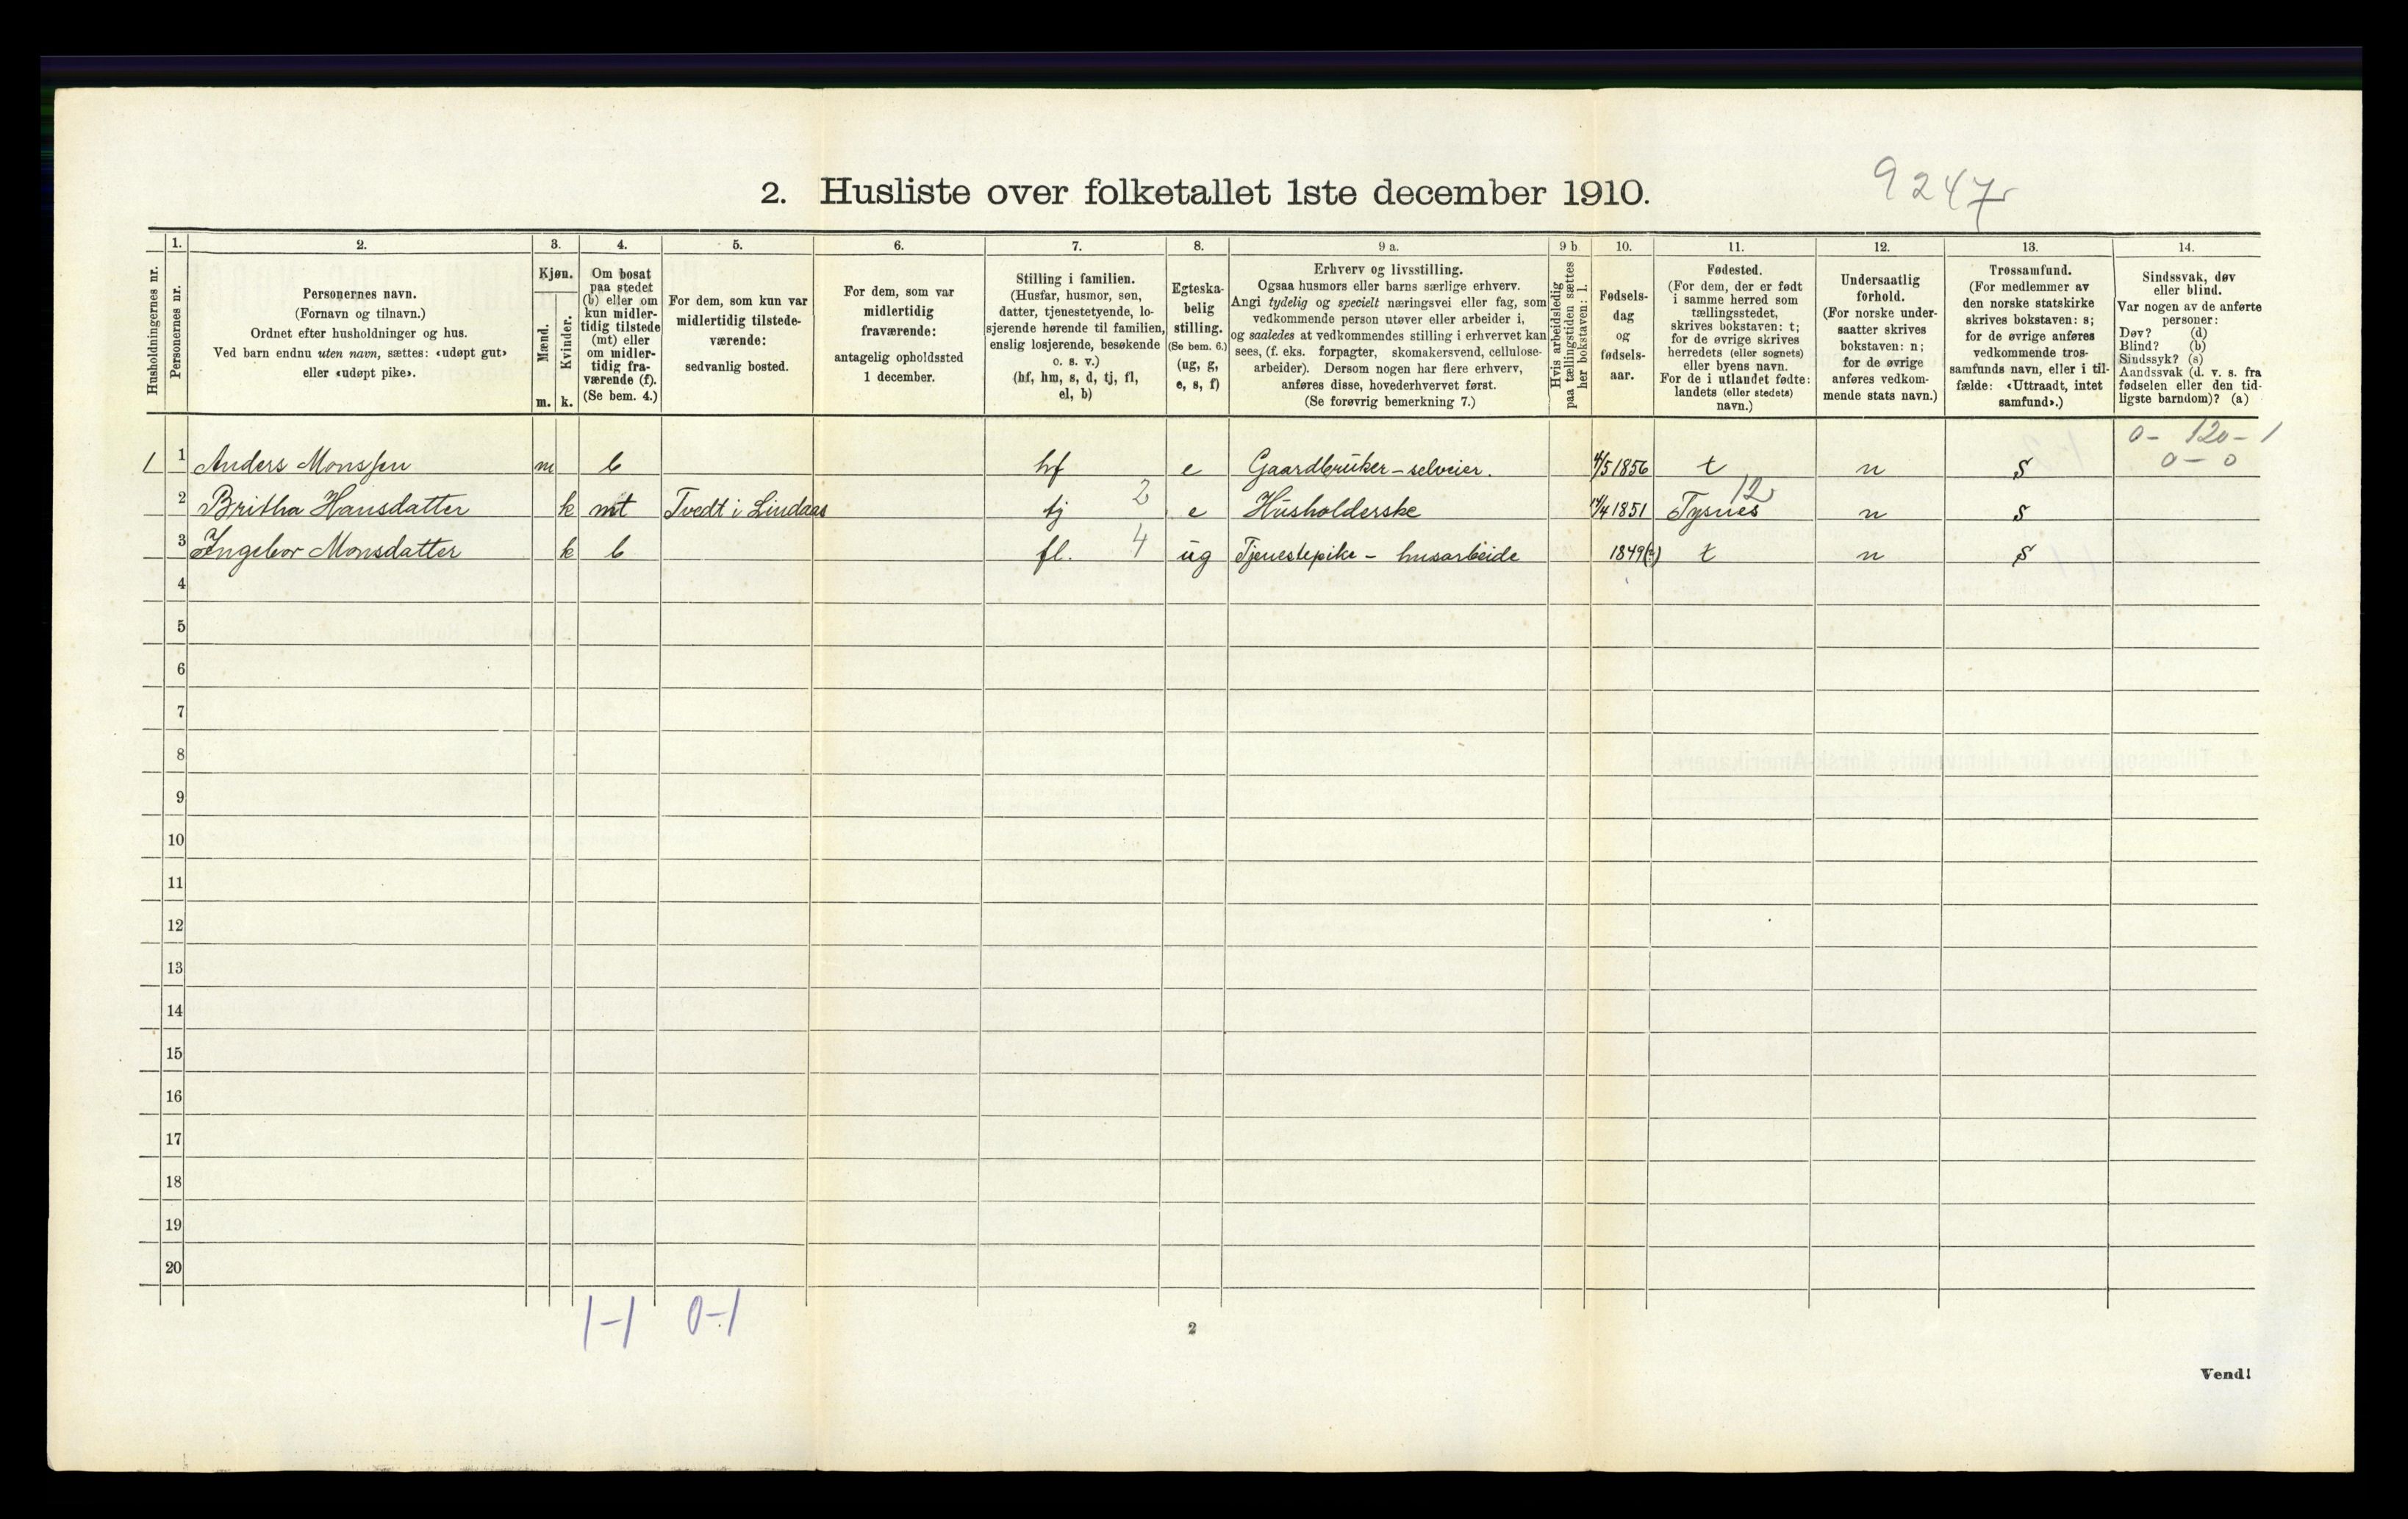 9247
2. Husliste over folketallet 1ste december 1910.
Husholdningernes nr.
1.
Personernes nr.
2.
Personernes navn.
(Fornavn og tilnavn.)
Ordnet efter husholdninger og hus.
Ved barn endnu uten navn, sættes: «udøpt gut»
eller «udøpt pike».
3.
Kjøn.
Mænd.
Kvinder.
m. k.
4.
Om bosat
paa stedet
(b) eller om
kun midler-
tidig tilstede
(mt) eller
om midler-
tidig fra-
værende (f).
(Se bem. 4.)
5.
For dem, som kun var
midlertidig tilstede-
værende:
sedvanlig bosted.
6.
For dem, som var
midlertidig
fraværende:
antagelig opholdssted
1 december.
7.
Stilling i familien.
(Husfar, husmor, søn,
datter, tjenestetyende, lo-
sjerende hørende til familien,
enslig losjerende, besøkende
o. s. v.)
(hf, hm, s, d, tj, fl,
el, b)
8.
Egteska-
belig
stilling.
(Se bem. 6.)
(ug, g,
e, s, f)
9 a.
Erhverv og livsstilling.
Ogsaa husmors eller barns særlige erhverv.
Angi tydelig og specielt næringsvei eller fag, som
vedkommende person utøver eller arbeider i,
og saaledes at vedkommendes stilling i erhvervet kan
sees, (f. eks. forpagter, skomakersvend, cellulose-
arbeider). Dersom nogen har flere erhverv,
anføres disse, hovederhvervet først.
(Se forøvrig bemerkning 7.)
9 b.
Hvis arbeidsledig
paa tællingstiden sættes
her bokstaven: l.
10.
Fødsels-
dag
og
fødsels-
aar.
11.
Fødested.
(For dem, der er født
i samme herred som
tællingsstedet,
skrives bokstaven: t;
for de øvrige skrives
herredets (eller sognets)
eller byens navn.
For de i utlandet fødte:
landets (eller stedets)
navn.)
12.
Undersaatlig
forhold.
(For norske under-
saatter skrives
bokstaven: n;
for de øvrige
anføres vedkom-
mende stats navn.)
13.
Trossamfund.
(For medlemmer av
den norske statskirke
skrives bokstaven: s;
for de øvrige anføres
vedkommende tros-
samfunds navn, eller i til-
fælde: «Uttraadt, intet
samfund».)
14.
Sindssvak, døv
eller blind.
Var nogen av de anførte
personer:
Døv? (d)
Blind? (b)
Sindssyk? (s)
Aandssvak (d. v. s. fra
fødselen eller den tid-
ligste barndom)? (a)
0 - 120 - 1
0 - 0
1 1 Anders Monssen m b hf e Gaardbruker - selveier. 4/5 1856 t n s
2 12
2 Britha Hansdatter k mt Tvedt i Lindaas tj e Husholderske 14/4 1851 Tysnes n s
3 Ingebor Monsdatter k b fl. 4 ug Tjenestepike - husarbeide 1849(?) t n s
4
5
6
7
8
9
10
11
12
13
14
15
16
17
18
19
20
1-1 0-1
2
Vend!